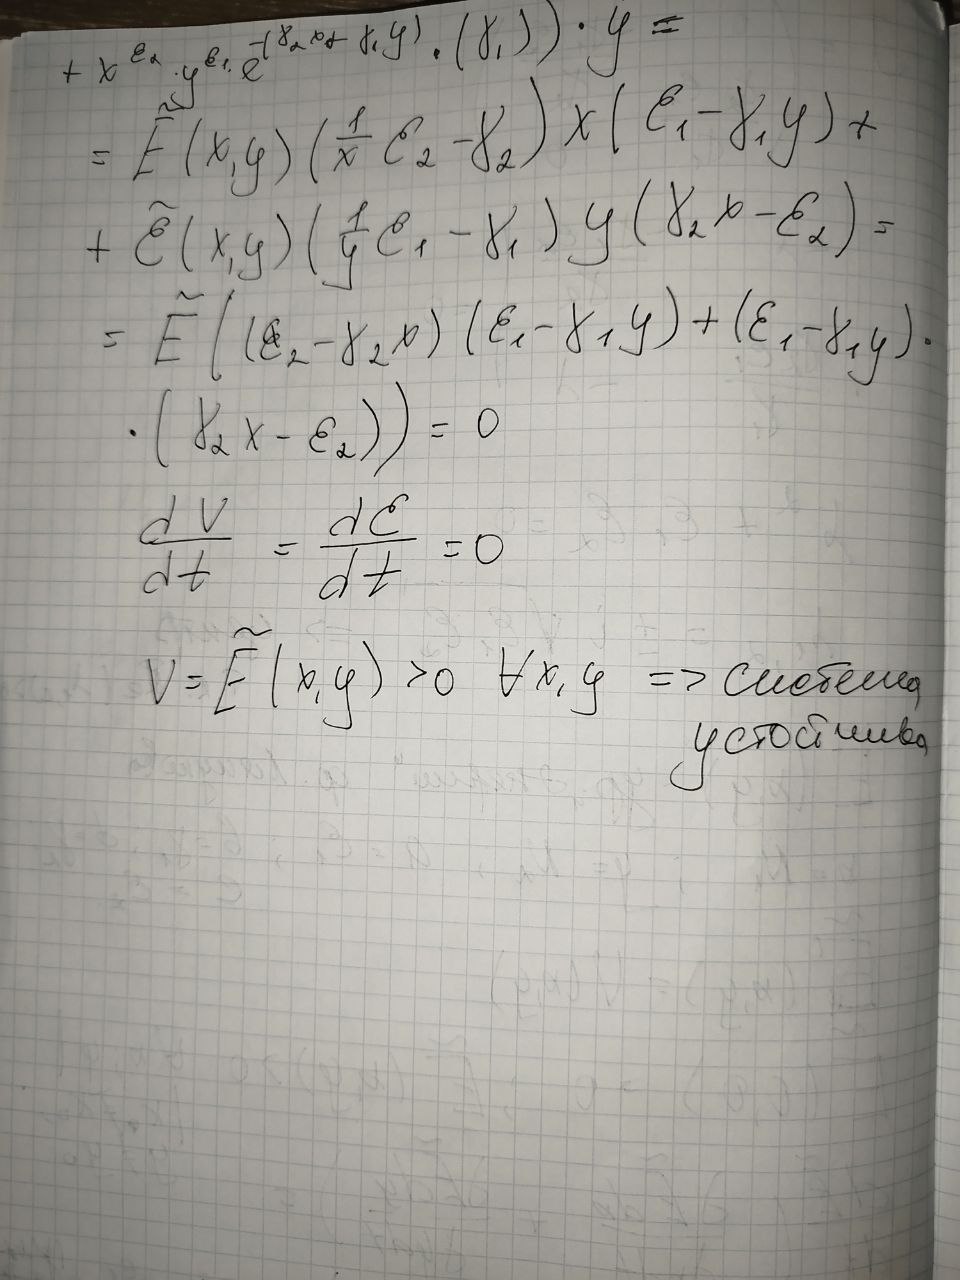 + x^{ε₂} · y^{ε₁} · e^{-(γ₂x + γ₁y)} · (γ₁)) · y =
= Ẽ(x,y)(1/x ε₂ - γ₂) x (ε₁ - γ₁y) +
+ ε̃(x,y)(1/y ε₁ - γ₁) y (γ₂x - ε₂) =
= Ẽ((ε₂ - γ₂x)(ε₁ - γ₁y) + (ε₁ - γ₁y) ·
· (γ₂x - ε₂)) = 0
dV/dt = dε/dt = 0
V = Ẽ(x,y) > 0 ∀x,y => система
устойчива